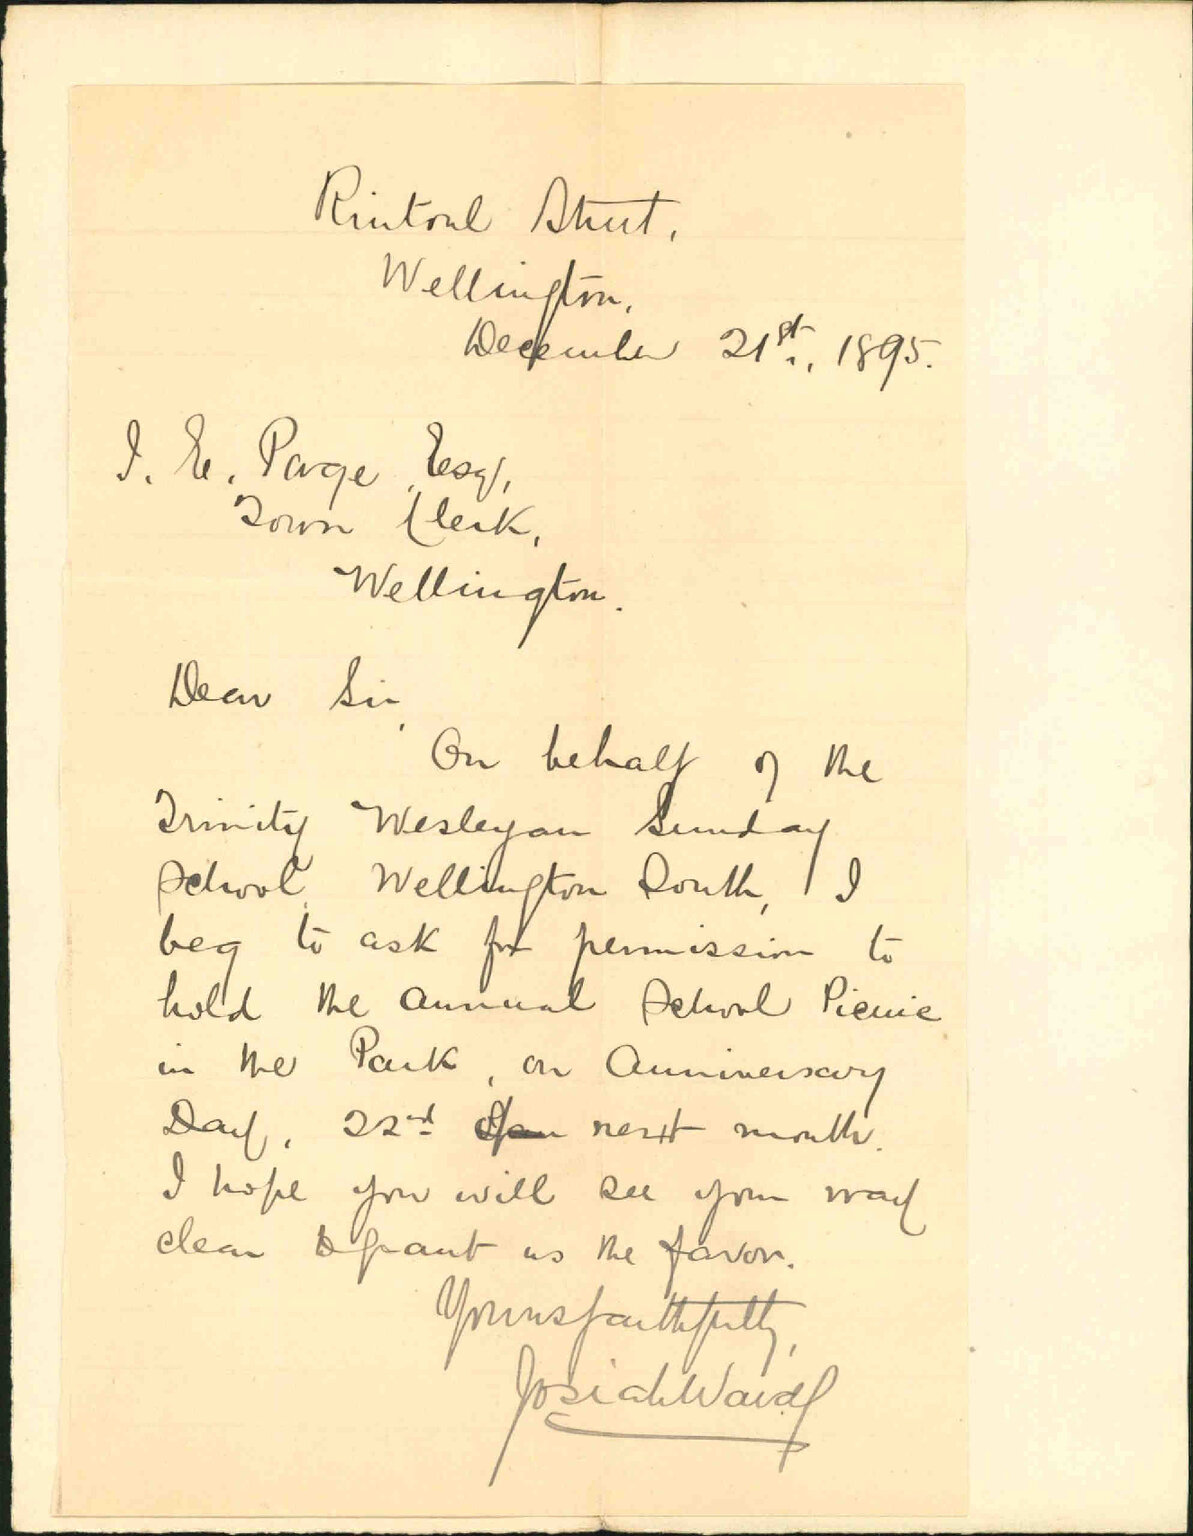 Rintoul Street,
Wellington,
December 21st., 1895.
J. E. Page, Esq,
Town Clerk,
Wellington.
Dear Sir,
On behalf of the
Trinity Wesleyan Sunday
School, Wellington South, I
beg to ask for permission to
hold the annual School Picnic
in the Park, on Anniversary
Day, 22nd next month.
I hope you will see your way
clear to grant us the favor.
Yours faithfully,
Josiah Ward